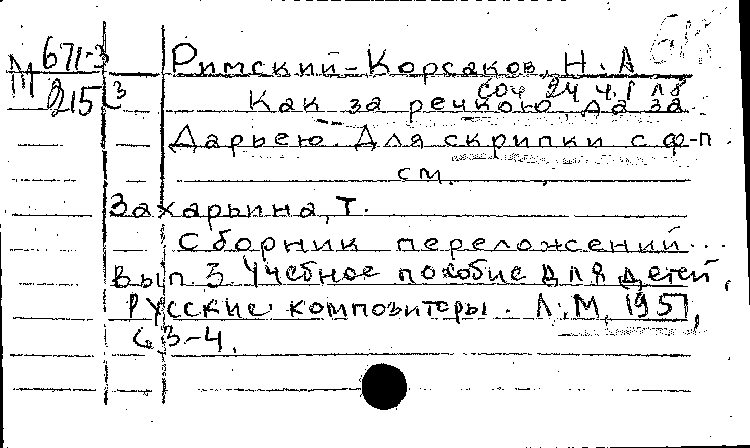 М 671-3
215 3
Римский-Корсаков, Н. А
соч 24 ч. 1 №8
Как за речкою, да за
Дарьею. Для скрипки с ф-п
см.
Захарьина, Т.
Сборник переложений...
Вып. 3. Учебное пособие для детей.
Русские композиторы. Л.-М, 1951,
с 3-4.